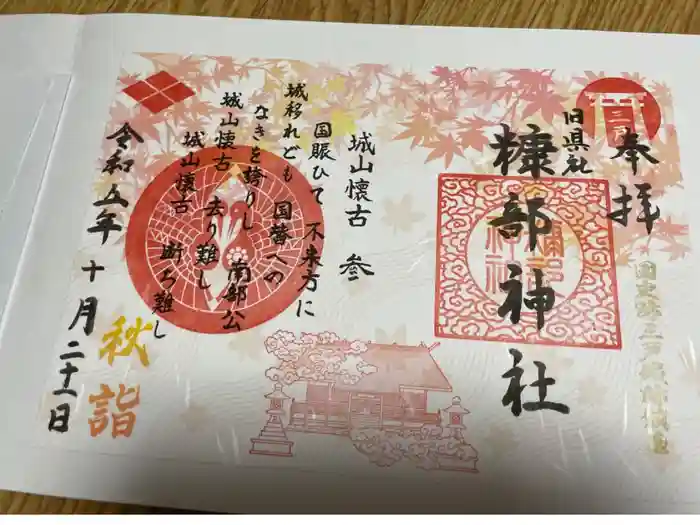 奉拝
三戸
旧県社
糠部神社
城山懐古 参
城移れども 国賑ひて 不来方に
なきを誇りし 国替への
城山懐古 去り難し 南部公
城山懐古 断ち難し
令和五年十月二十一日
秋詣